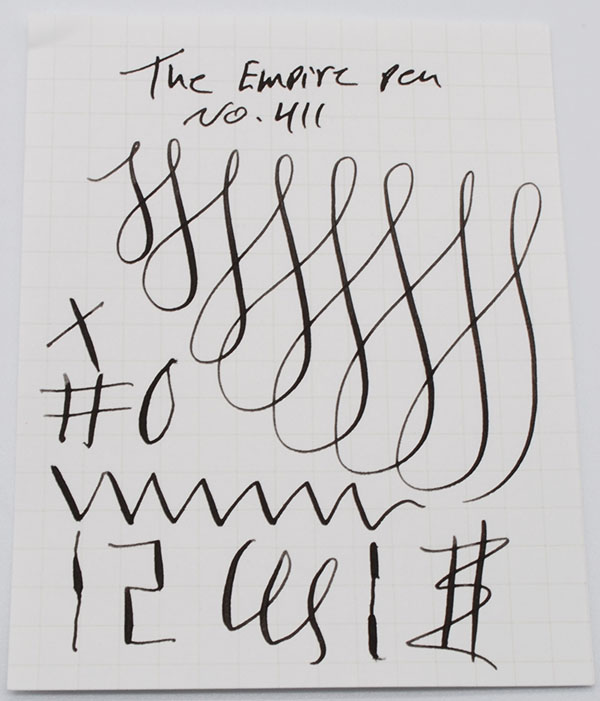 The Empire pen
No. 411
x
#0